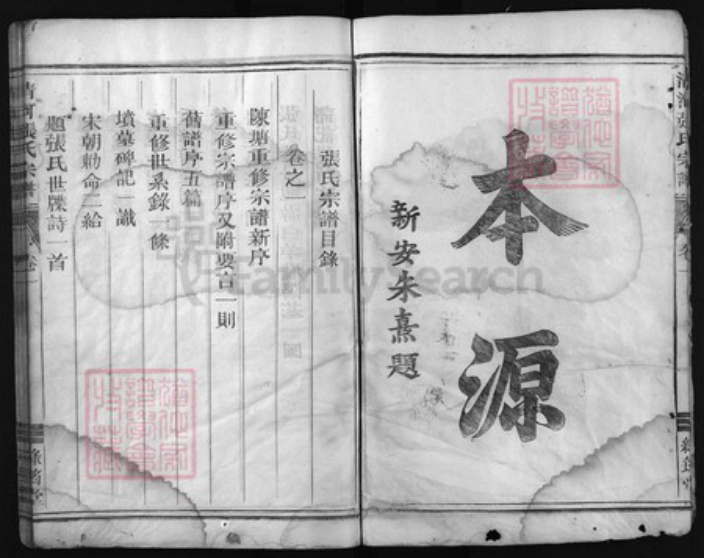 本源
新安朱熹題
張氏宗譜目錄
卷之一
陳塘重修宗譜新序
重修宗譜序又附要言一則
舊譜序五篇
重修世系錄 條
墳墓碑記一識
宋朝勅命二給
題張氏世牒詩一首
清河張氏宗譜
卷一
清河張氏宗譜
FamilySearch